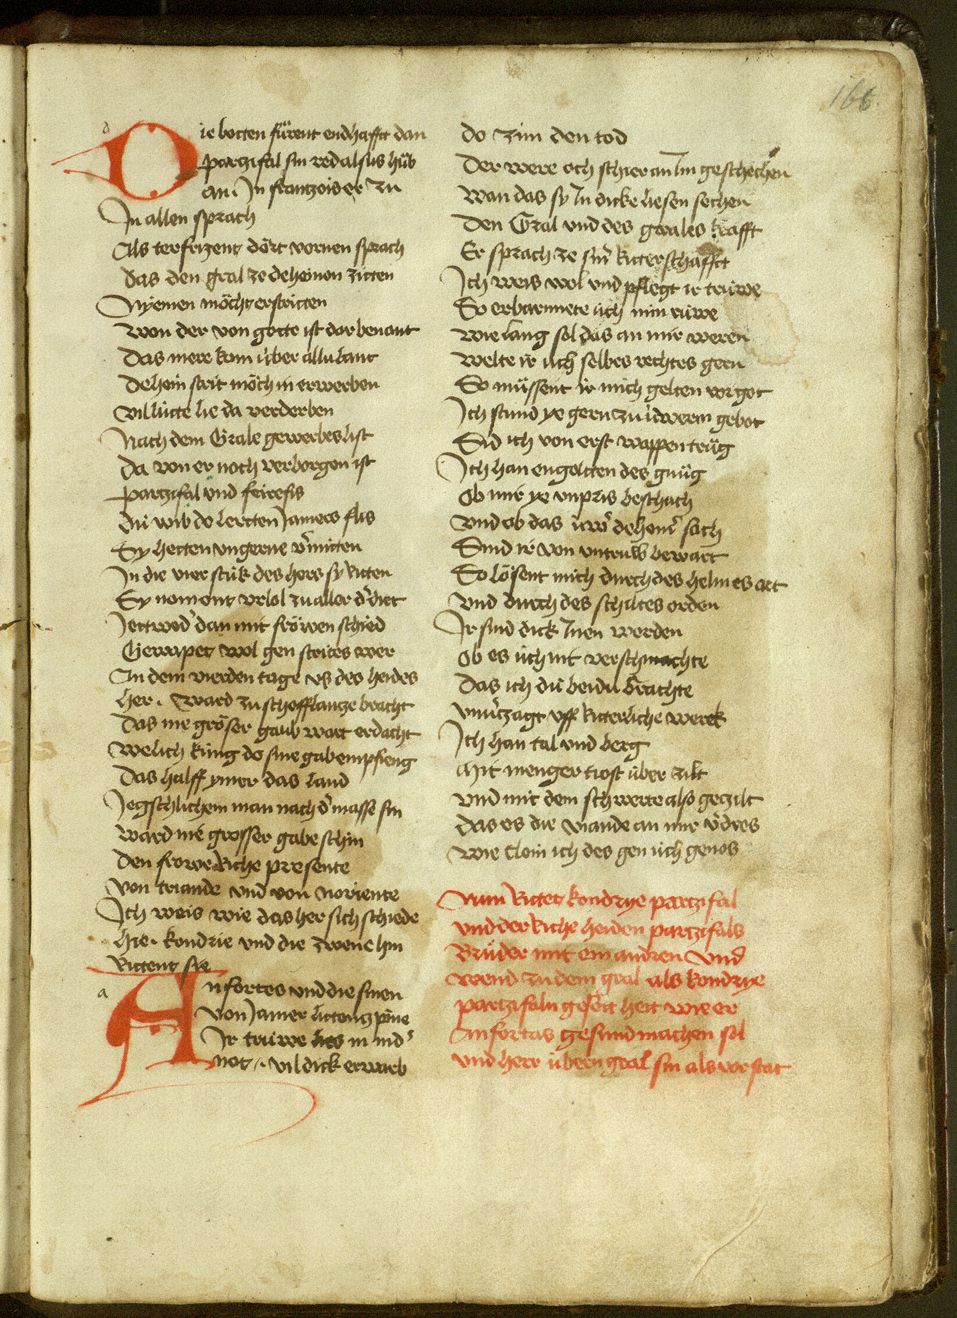 166.
Die botten fürent endhafft dan
parzifal sin red alsus hüb
an. Jn franzois er zu
Jn allen sprach
Als terfizent dört vornen sprach
das den gral ze deheinen zitten
Nyemen möcht erstritten
Won der von gotte ist dar benant
Das mere kom über allu lant
Dehein strit möch in erwerben
Vil lütte lie da verderben
Nach dem Grale gewerbes list
Da von er noch verborgen ist
Parzifal vnd feirefis
Dü wib do lertten Jamers flis
Sy hetten vngerne vmitten
Jn die vier stük des hers sy ritten
Sy noment vrlol zu aller diet
Jettwed dan mit fröwen schied
Gewapet wol gen strites wer
An dem vierden tage vs des heides
her. Ward zu schofflanze bracht
Das nie gröser gaub wart erdacht
Welich küng do sine gab empfieng
Das halff ymer das land
Jegschlichem man nach d masse sin
Ward nie grosser gabe schin
Den frowe Riche presente
Von triande vnd von noriente
Jch weis wie das her sich schiede
hie. kondrie vnd die zwene hin
Rittent sie
Anfortes vnd die sinen
Von Jamer littent pine
Jr trüwe lies in ind
not. vil dick erwarb
do zim den tod
Der were och schier an Jm geschechen
Wan das sy Jn dicke liesen sechen
Den Gral vnd des grales krafft
Er sprach ze sinr Ritterschafft
Jch weis wol vnd pflegt ir trüwe
So erbarmete üch min rüwe
Wie lang sol das an mir weren
Welte ir üch selbes rechtes gern
So müssent ir mich gelten vor got
Jch stund ye gern zu üwerm gebot
Sid ich von erst wappen trüg
Jch han engoltten des gnüg
Ob mir ye vnpris beschach
Vnd ob das üwr deheinr sach
Sind ir von vntruw bewart
So lösent mich durch des helmes art
Vnd durch des schiltes orden
Jr sind dick Jnen worden
Ob es üch nit verschmachte
Das ich dü beidü brachte
vnuzagt vff Ritterliche werck
Jch han tal vnd berg
Mit menger tiost über zilt
Vnd mit dem schwerte also gezilt
Das es die viande an mir vdros
Wie clein ich des gen üch genos
Nun Rittet kondrye parzifal
vnd der Riche heiden parzifals
Brüder mit ein andren vnd
wend zu dem gral als kondrye
parzifaln geseit hett wie er
Anfortas gesund machen sol
vnd herr übern gral sin als vor stat